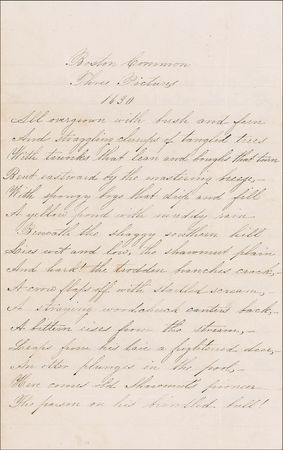 Boston Common
Three Pictures
1630
All overgrown with bush and fern
And straggling clumps of tangled trees
With trunks that lean and boughs that turn
Bent eastward by the mastering breeze,—
With spongy bogs that drip and fill
A yellow pond with muddy rain
Beneath the shaggy southern hill
Lies wet and low, the Shawmut plain
And hark! the trodden branches crack,—
A crow flaps off with startled scream,—
A straying woodchuck canters back,—
A bittern rises from the stream,—
Leaps from his lair a frightened deer,—
An otter plunges in the pool,—
Here comes old Shawmut's pioneer
The parson on his brindled bull!